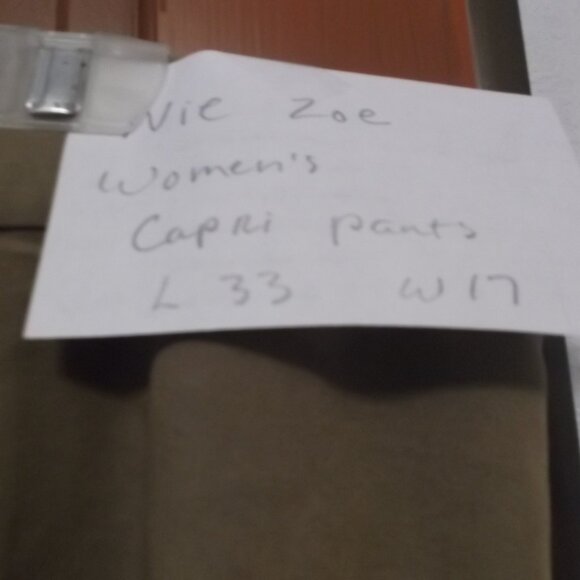 Vie Zoe
Women's
Capri pants
L 33 W 17